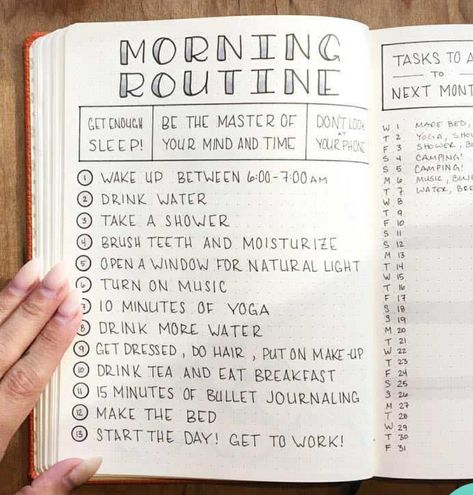 MORNING
ROUTINE
GET ENOUGH
SLEEP!
BE THE MASTER OF
YOUR MIND AND TIME
DON'T LOOK
AT
YOUR PHONE
1 WAKE UP BETWEEN 6:00-7:00 AM
2 DRINK WATER
3 TAKE A SHOWER
4 BRUSH TEETH AND MOISTURIZE
5 OPEN A WINDOW FOR NATURAL LIGHT
6 TURN ON MUSIC
7 10 MINUTES OF YOGA
8 DRINK MORE WATER
9 GET DRESSED, DO HAIR, PUT ON MAKE-UP
10 DRINK TEA AND EAT BREAKFAST
11 15 MINUTES OF BULLET JOURNALING
12 MAKE THE BED
13 START THE DAY! GET TO WORK!
TASKS TO A
TO
NEXT MONT
W 1 MADE BED,
T 2 YOGA, SHOW
F 3 SHOWER,
S 4 CAMPING!
S 5 CAMPING!
M 6 MUSIC,
T 7 WATER,
W 8
T 9
F 10
S 11
S 12
M 13
T 14
W 15
T 16
F 17
S 18
S 19
M 20
T 21
W 22
T 23
F 24
S 25
S 26
M 27
T 28
W 29
T 30
F 31